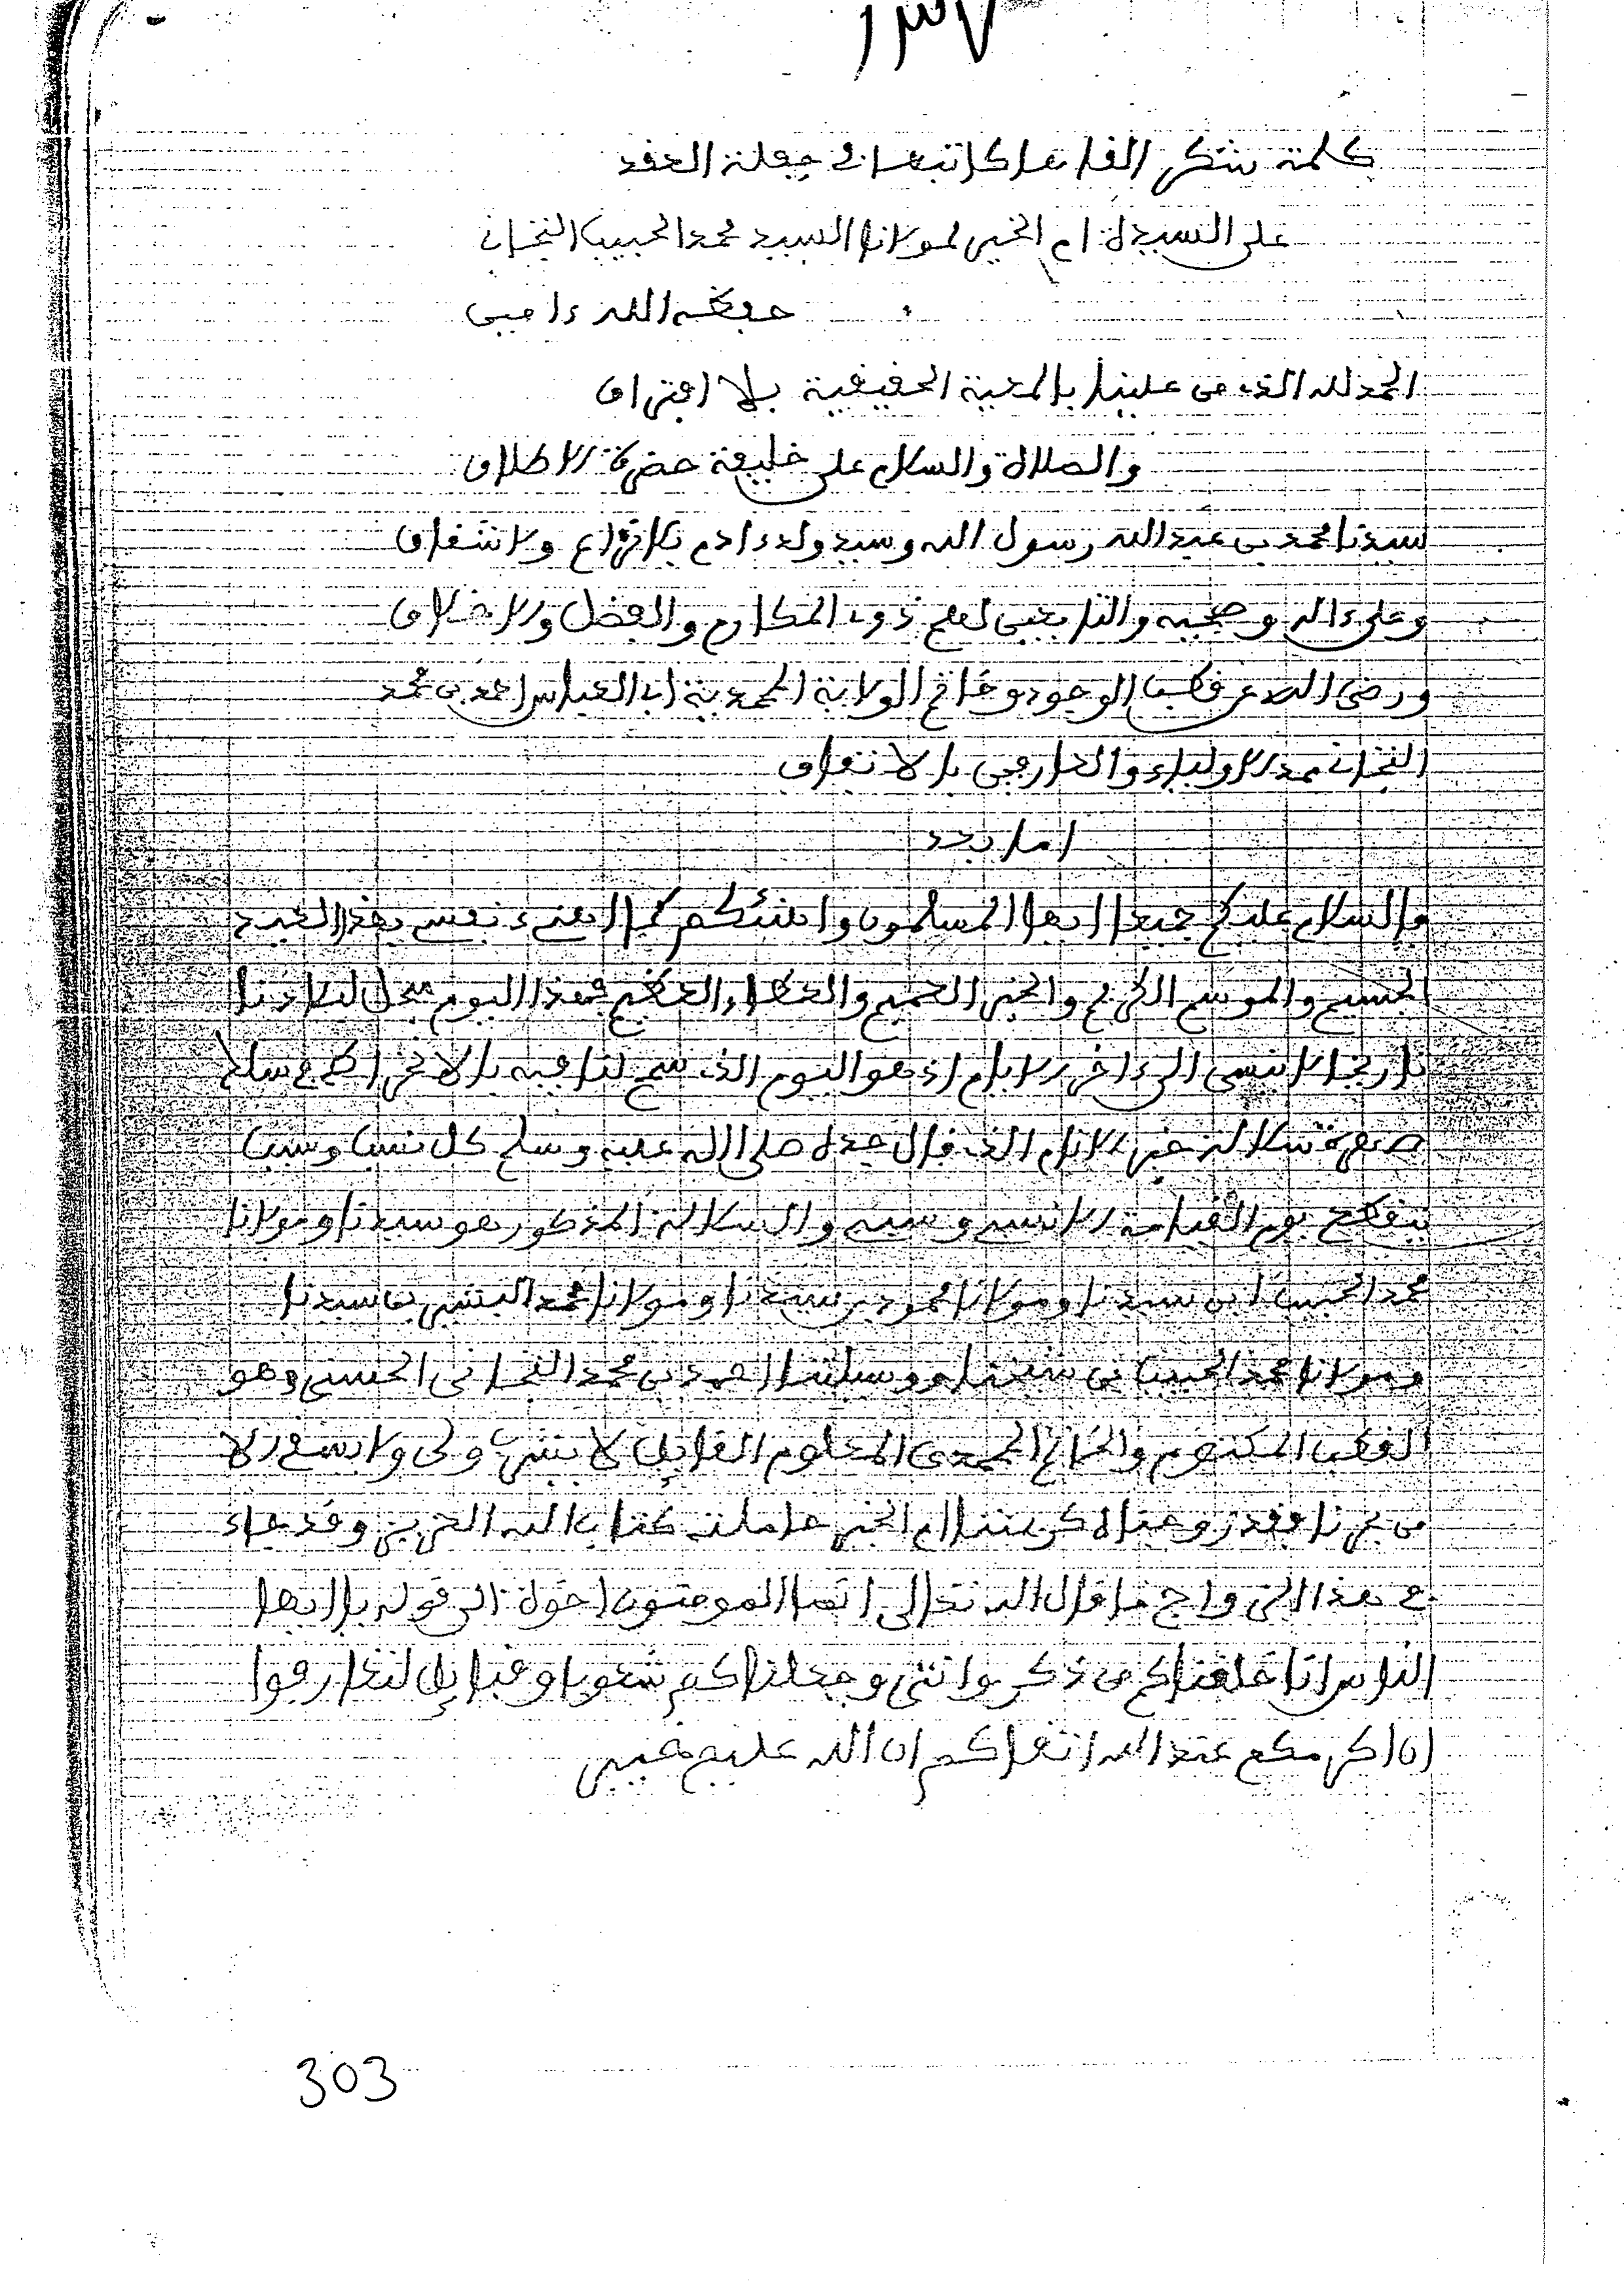 كلمة شكر القاها كاتبها في حفلة العقد
على السيدة ام الخير لمولانا السيد محمد الحبيب التجاني
حفظه الله ءامين
الحمد لله الذي من علينا بالمعية الحقيقية بلا افتراق
والصلاة والسلام على خليفة حضرة الاطلاق
سيدنا محمد بن عبد الله رسول الله وسيد ولد ءادم بلا نزاع ولا شقاق
وعلى ءاله وصحبه والتابعين لهم ذوي المكارم والفضل والاخلاق
ورضي الله عن قطب الوجود وخاتم الولاية المحمدية ابي العباس احمد بن محمد
التجاني ممد الاولياء والعارفين بالاتفاق
اما بعد
فالسلام عليكم جميعا ايها المسلمون واهنئكم كما اهنيء نفسي بهذا العيد
الجسيم والموسم الكريم والخير العميم والعطاء العظيم فهذا اليوم سجل لبلادنا
تاريخا لا ينسى الى ءاخر الايام اذ هو اليوم الذي سمح لنا فيه بالانخراط في سلك
صهرة سلالة خير الانام الذي قال جده صلى الله عليه وسلم كل نسب وسبب
ينقطع يوم القيامة الا نسبي وسببي والسلالة المذكور هو سيدنا ومولانا
محمد الحبيب ابن سيدنا ومولانا محمود بن سيدنا ومولانا محمد البشير بن سيدنا
ومولانا محمد الحبيب بن شيخنا ووسيلتنا احمد بن محمد التجاني الحسني وهو
القطب المكتوم والخاتم المحمدي المعلوم القايل لا يشرب ولي ولا يسقى الا
من بحرنا فقد زوجناه كريمتنا ام الخير حاملة كتاب الله العزيز وقد جاء
في هذا الزواج ما قال الله تعالى انما المومنون اخوة الى قوله يا ايها
الناس انا خلقناكم من ذكر وانثى وجعلناكم شعوبا وقبايل لتعارفوا
ان اكرمكم عند الله اتقاكم ان الله عليم خبير
303